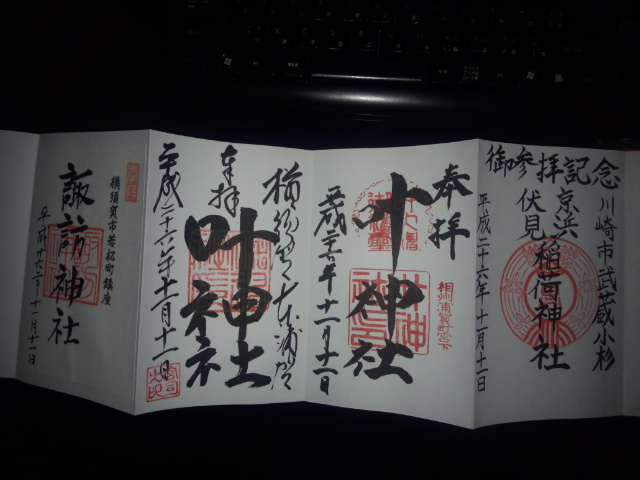 御参拝記念
川崎市武蔵小杉
京浜
伏見稲荷神社
平成二十六年十一月十一日
奉拝
叶神社
相州浦賀町宮下
平成二六年十一月十一日
横須賀東浦賀
奉拝
叶神社
平成二十六年十一月十一日
横須賀市若松町鎮座
諏訪神社
平成廿六年十一月十一日